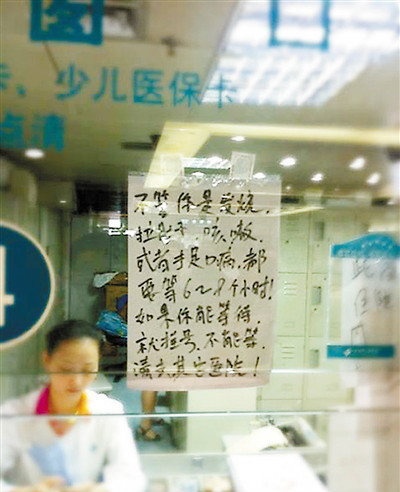 卡、少儿医保卡
点清
4
不管你是发烧,
拉肚子,咳嗽,
或者手足口病,都
要等6~8个小时!
如果你能等待,
就挂号,不能等,
请去其它医院!